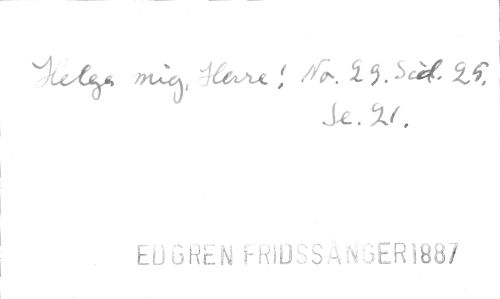 Helga mig, Herre! No. 29. Sid. 25.
Se. 21.
EDGREN FRIDSSÅNGER 1887